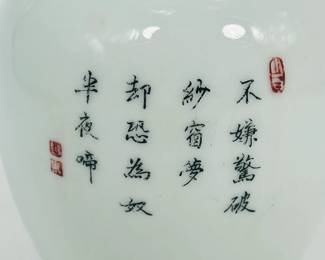 不嫌驚破
紗窗夢
却恐為奴
半夜啼